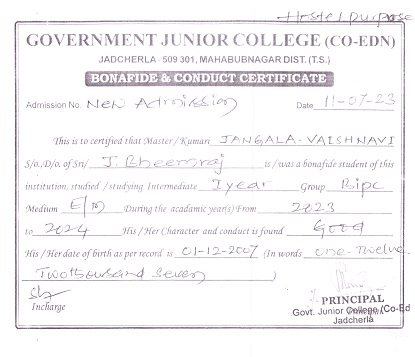 Hostel purpose
GOVERNMENT JUNIOR COLLEGE (CO-EDN)
JADCHERLA - 509 301, MAHABUBNAGAR DIST. (T.S.)
BONAFIDE & CONDUCT CERTIFICATE
Admission No. New Admission Date 11-07-23
This is to certified that Master / Kumari JANGALA. VAISHNAVI
S/o.,D/o. of Sri/ J. Bheemraj is / was a bonafide student of this
institution, studied / studying Intermediate I year Group Bipc
Medium E/M During the acadamic year(s) From 2023
to 2024 His / Her Character and conduct is found Good
His / Her date of birth as per record is 01-12-2007 (In words one-Twelve
Two thousand Seven )
Incharge
PRINCIPAL
Govt. Junior College (Co-Ed
Jadcherla